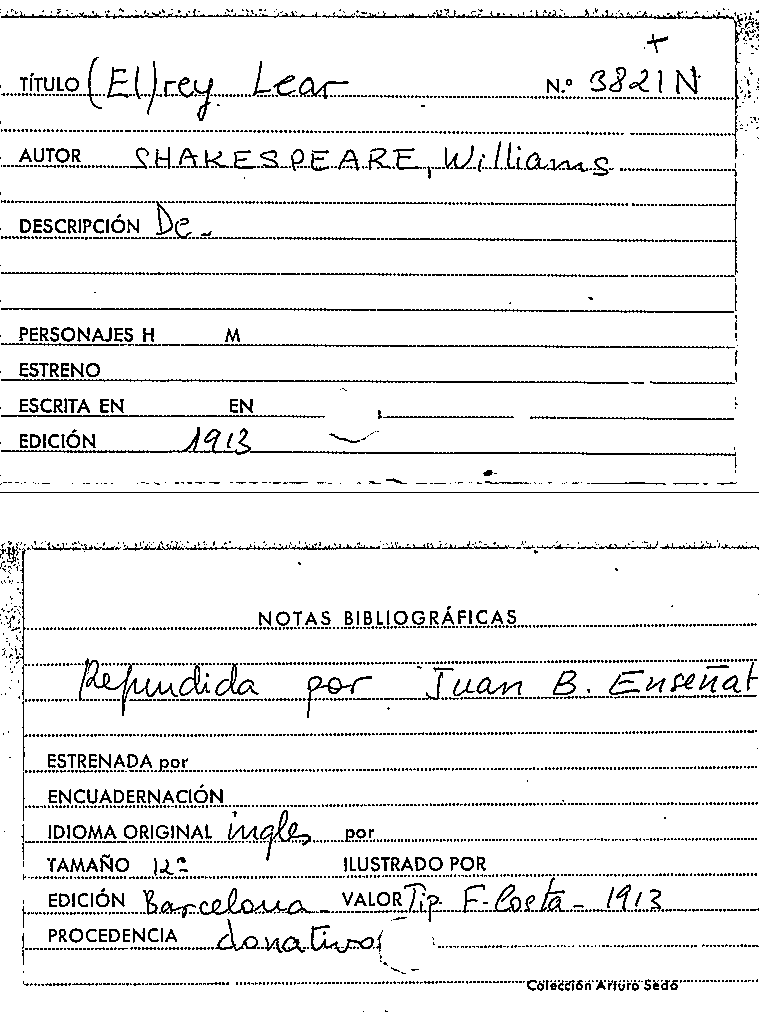 +
TÍTULO (El) rey Lear N.º 3821N
AUTOR SHAKESPEARE, Williams
DESCRIPCIÓN De -
PERSONAJES H M
ESTRENO
ESCRITA EN EN
EDICIÓN 1913
NOTAS BIBLIOGRÁFICAS
Refundida por Juan B. Enseñat
ESTRENADA por
ENCUADERNACIÓN
IDIOMA ORIGINAL ingles por
TAMAÑO 12º ILUSTRADO POR
EDICIÓN Barcelona - VALOR Tip F. Costa - 1913
PROCEDENCIA donativo
Colección Arturo Sedó